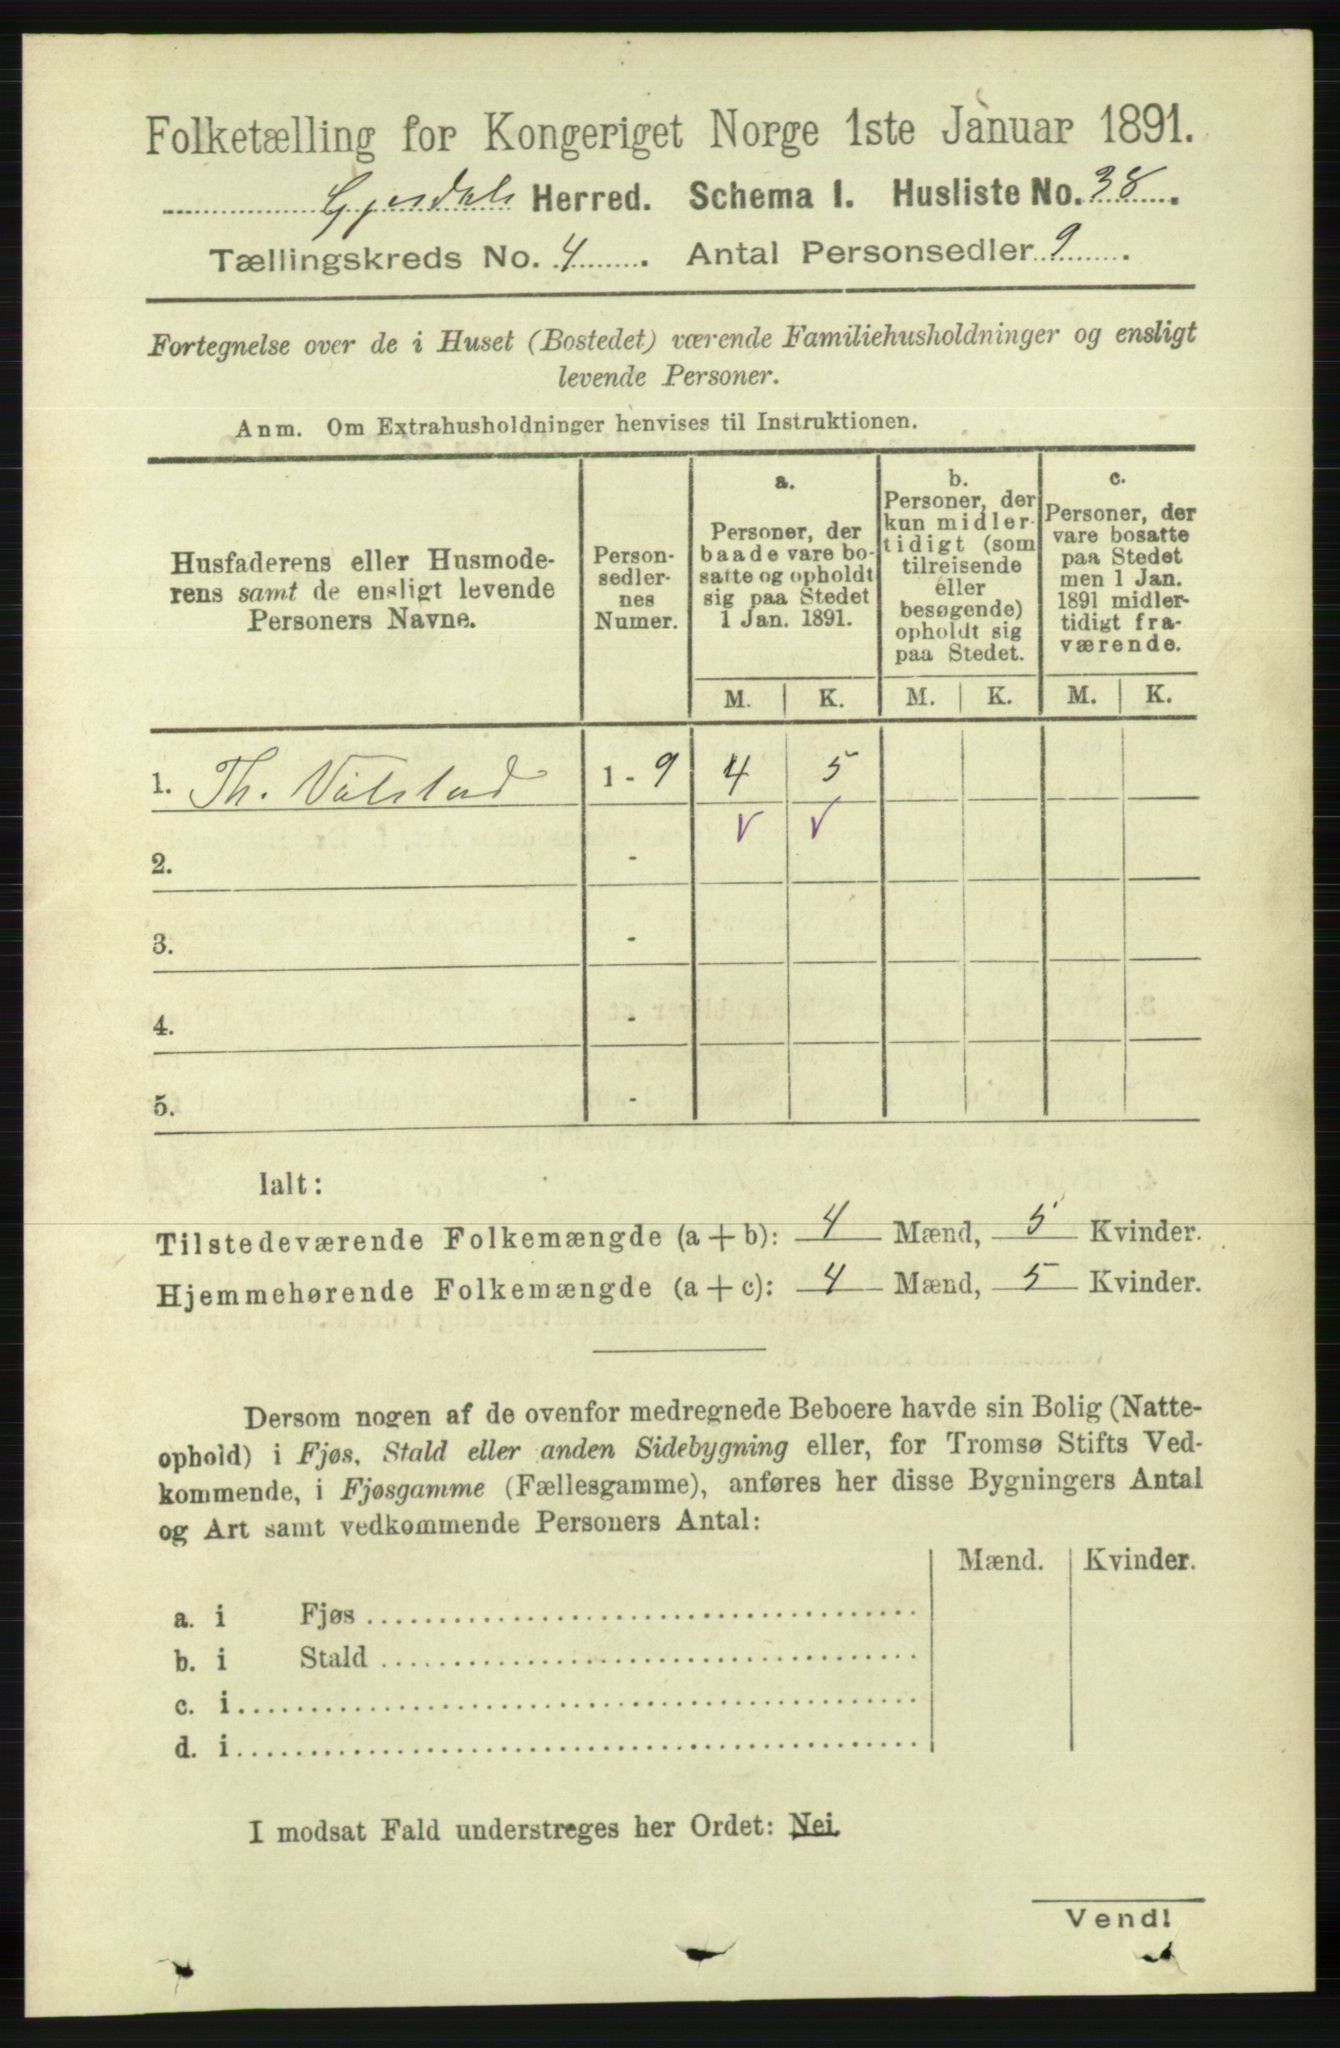 Folketælling for Kongeriget Norge 1ste Januar 1891.
Gjesdal Herred. Schema I. Husliste No. 38.
Tællingskreds No. 4. Antal Personsedler 9.
Fortegnelse over de i Huset (Bostedet) værende Familiehusholdninger og ensligt
levende Personer.
Anm. Om Extrahusholdninger henvises til Instruktionen.
Husfaderens eller Husmode-
rens samt de ensligt levende
Personers Navne.
Person-
sedler-
nes
Numer.
a.
Personer, der
baade vare bo-
satte og opholdt
sig paa Stedet
1 Jan. 1891.
b.
Personer, der
kun midler-
tidigt (som
tilreisende
eller
besøgende)
opholdt sig
paa Stedet.
c.
Personer, der
vare bosatte
paa Stedet
men 1 Jan.
1891 midler-
tidigt fra-
værende.
M. K. M. K. M. K.
1. Th. 1 - 9 4 5
2. -
3. -
4. -
5. -
Ialt:
Tilstedeværende Folkemængde (a + b): 4 Mænd, 5 Kvinder.
Hjemmehørende Folkemængde (a + c): 4 Mænd, 5 Kvinder.
Dersom nogen af de ovenfor medregnede Beboere havde sin Bolig (Natte-
ophold) i Fjøs, Stald eller anden Sidebygning eller, for Tromsø Stifts Ved-
kommende, i Fjøsgamme (Fællesgamme), anføres her disse Bygningers Antal
og Art samt vedkommende Personers Antal:
Mænd. Kvinder.
a. i Fjøs
b. i Stald
c. i
d. i
I modsat Fald understreges her Ordet: Nei.
Vend!